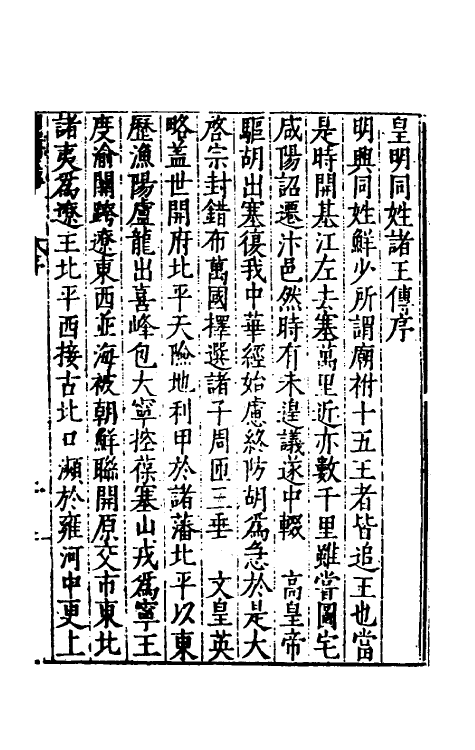 皇明同姓諸王傳序
明興同姓鮮少所謂廟祔十五王者皆追王也當
是時開基江左去塞萬里近亦數千里雖嘗圖宅
咸陽詔遷汴邑然時有未遑議遂中輟　高皇帝
驅胡出塞復我中華經始慮終防胡爲急於是大
啓宗封錯布萬國擇選諸子周匝三垂　文皇英
略蓋世開府北平天險地利甲於諸藩北平以東
歷漁陽盧龍出喜峰包大寧控葆塞山戎爲寧王
度渝關跨遼東西並海被朝鮮聯開原交市東北
諸夷爲遼王北平西接古北口瀕於雍河中更上